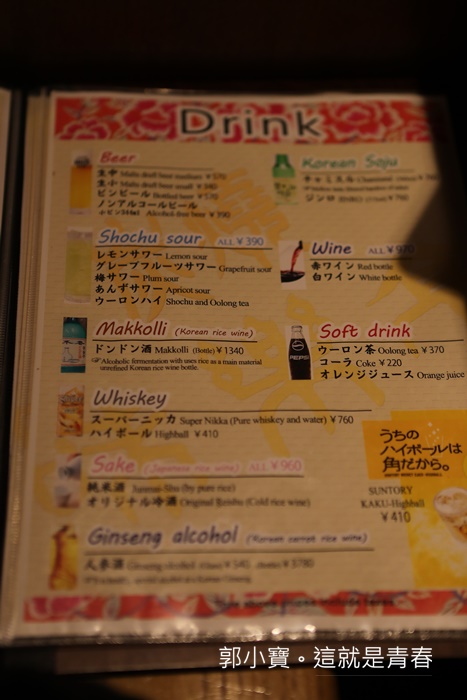 Drink
Beer
生中 Malts draft beer medium ¥570
生小 Malts draft beer small ¥340
ビンビール Bottled beer ¥570
ノンアルコールビール
小ビン334ml Alcohol-free beer ¥390
Korean Soju
チャミスル
ジンロ
Shochu sour ALL ¥390
レモンサワー Lemon sour
グレープフルーツサワー Grapefruit sour
梅サワー Plum sour
あんずサワー Apricot sour
ウーロンハイ Shochu and Oolong tea
Wine ALL ¥970
赤ワイン Red bottle
白ワイン White bottle
Makkolli (Korean rice wine)
ドンドン酒 Makkolli (Bottle) ¥1340
Alcoholic fermentation with uses rice as a main material
unrefined Korean rice wine bottle.
PEPSI
Soft drink
ウーロン茶 Oolong tea ¥370
コーラ Coke ¥220
オレンジジュース Orange juice
Whiskey
スーパーニッカ Super Nikka (Pure whiskey and water) ¥760
ハイボール Highball ¥410
うちの
ハイボールは
角だから。
SUNTORY
KAKU-Highball
¥410
Sake (Japanese rice wine) ALL ¥960
純米酒 Junmai-Shu (by pure rice)
オリジナル冷酒 Original Reishu (Cold rice wine)
Ginseng alcohol (Korean carrot rice wine)
人参酒 Ginseng alcohol
郭小寶。這就是青春